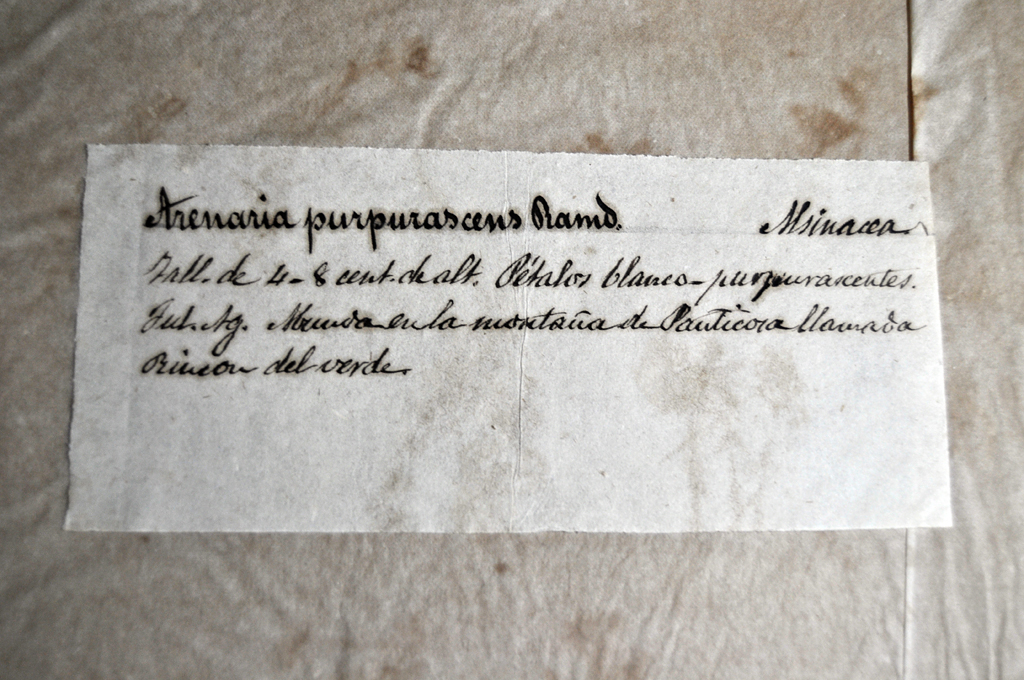 Arenaria purpurascens Ramd. Alsinacea.
Tall. de 4-8 cent. de alt. Pétalos blanco-purpurascentes.
Jul. Ag. Abunda en la montaña de Panticosa llamada
Rincon del verde.